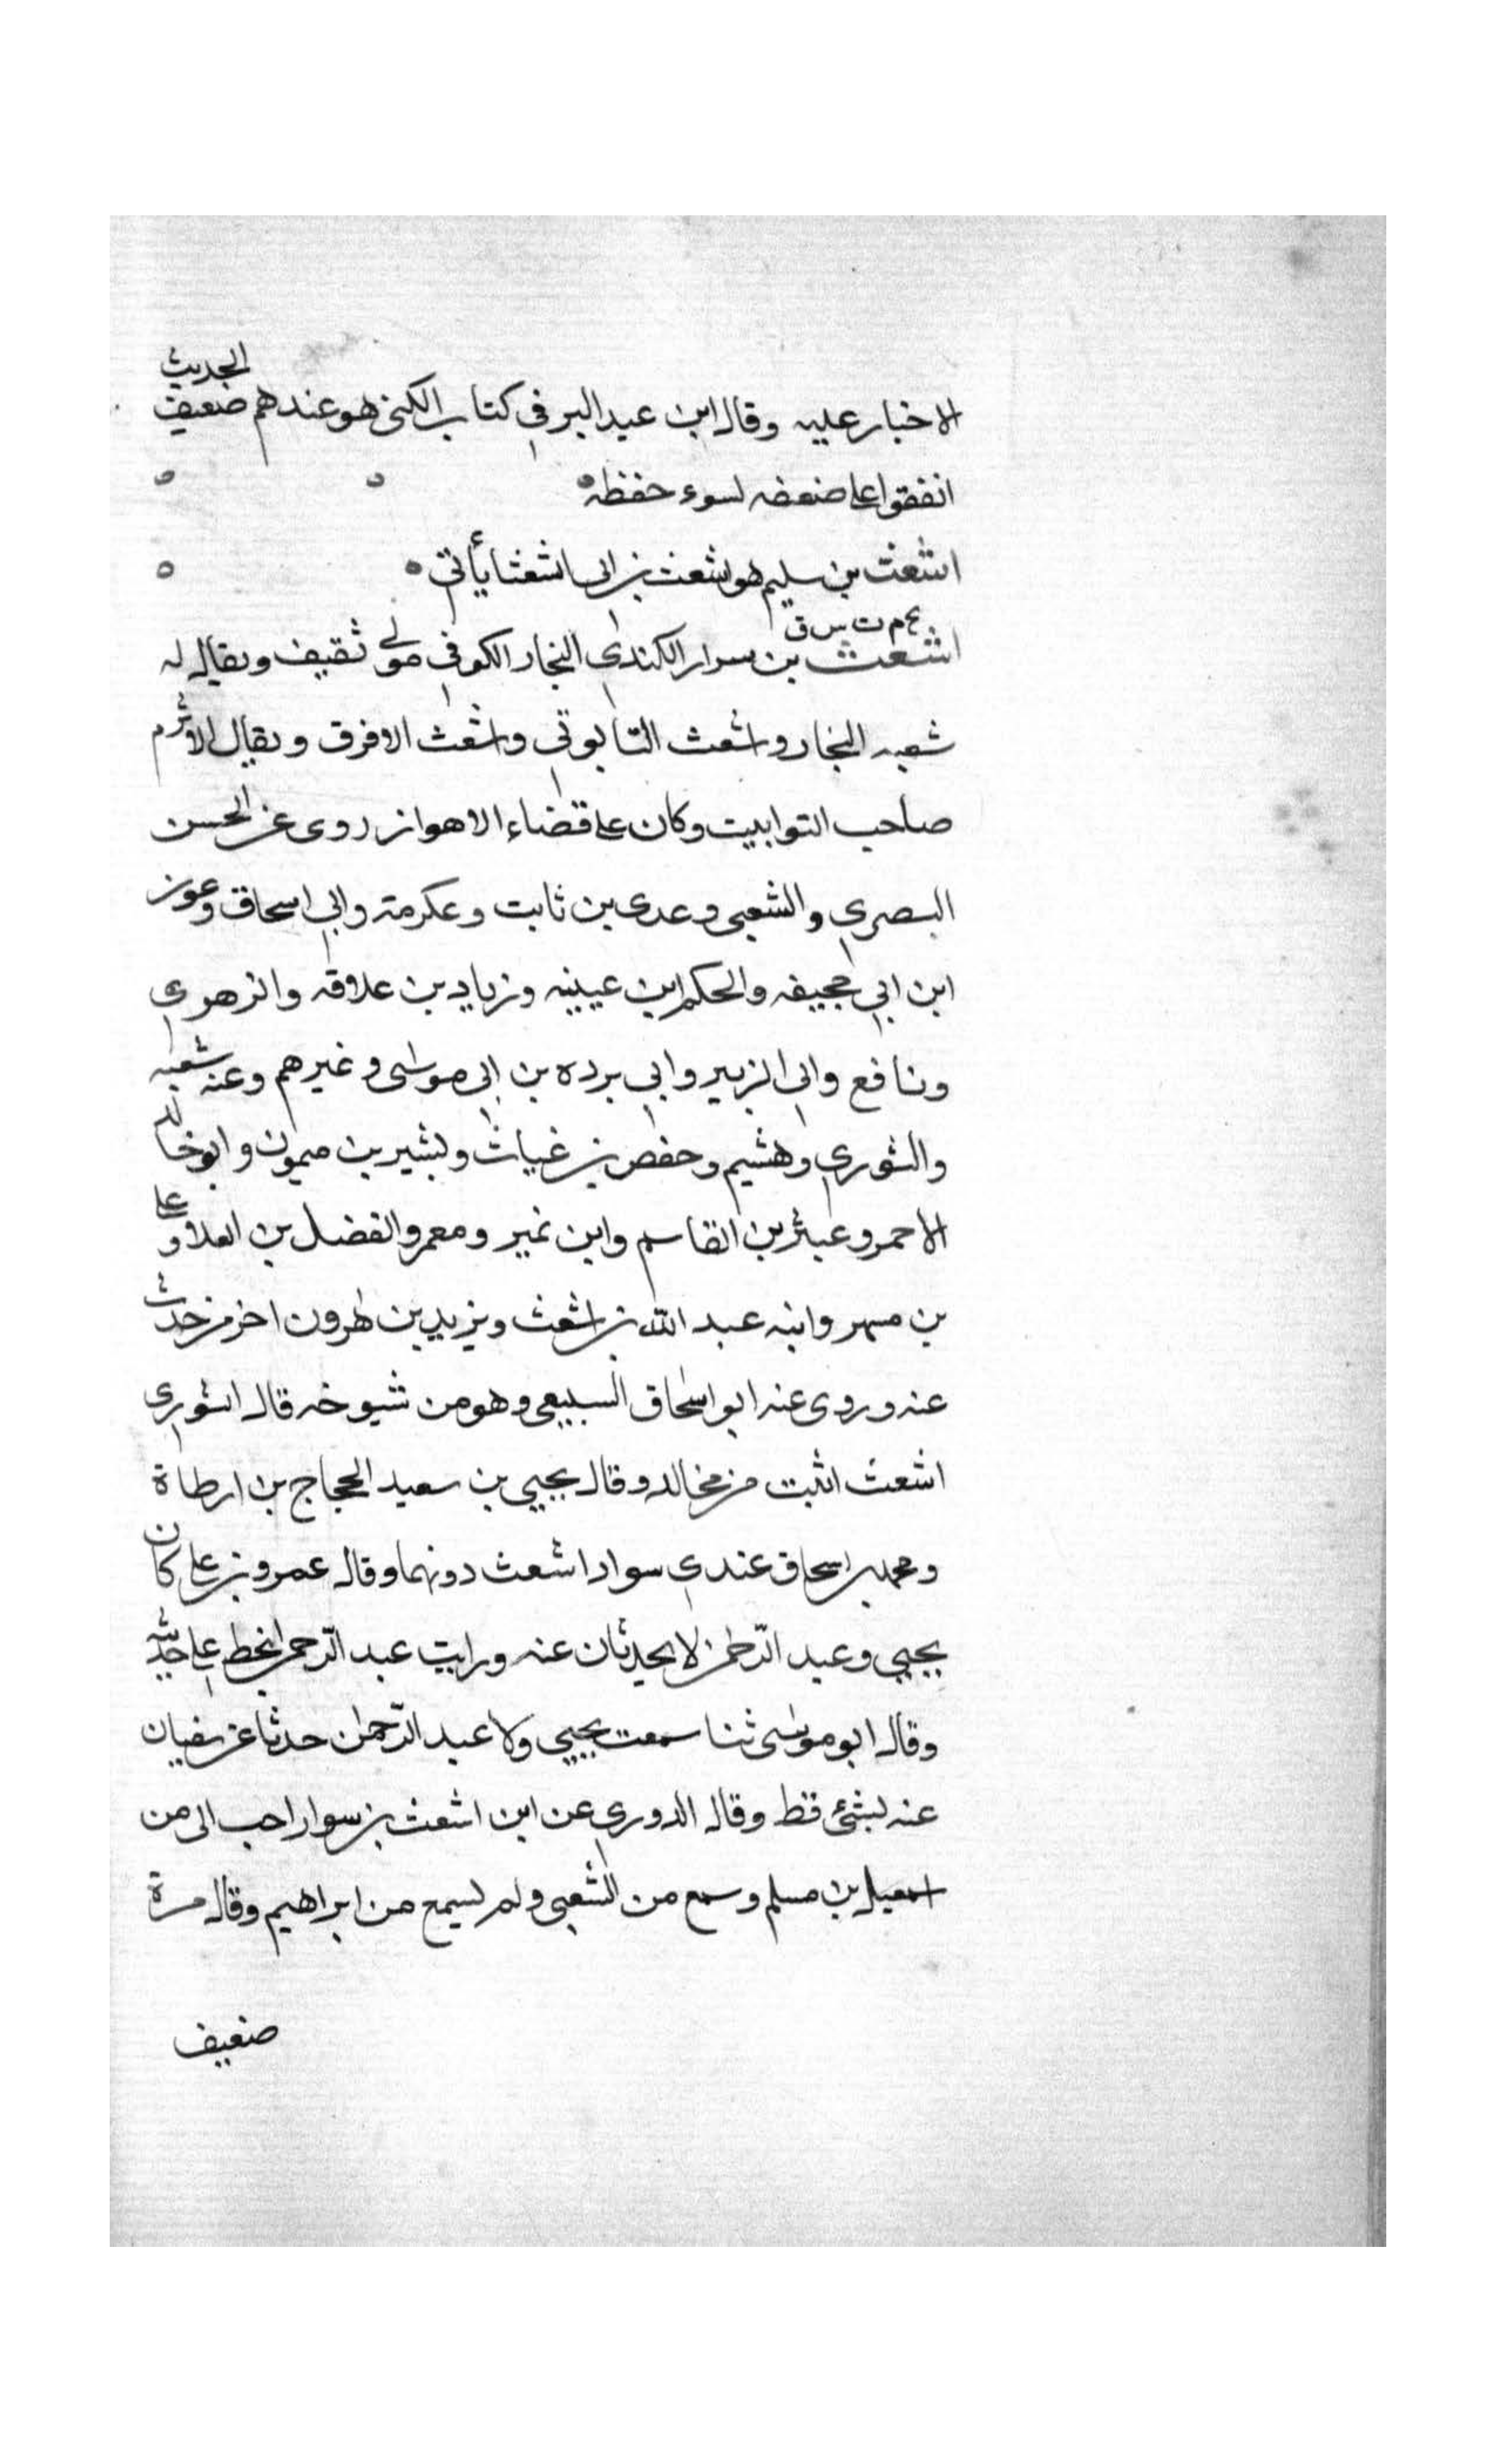 الاخبار عليه وقال ابن عبد البر في كتاب الكنى هو عندهم ضعيف الحديث
اتفقوا على ضعفه لسوء حفظه
اشعث بن سليم هو اشعث بن ابي الشعثا يأتي
بخ م ت س ق
اشعث بن سوار الكندي النجار الكوفي مولى ثقيف ويقال له
شعبه النجار واشعث التابوتي واشعث الافرق ويقال الاثرم
صاحب التوابيت وكان على قضاء الاهواز روى عن الحسن
البصري والشعبى وعدى بن ثابت وعكرمة وابي اسحاق وعون
ابن ابي جحيفه والحكم ابن عيينه وزياد بن علاقه والزهري
ونافع وابى الزبير وابي برده بن ابى موسى وغيرهم وعنه شعبه
والثوري وهشيم وحفص بن غياث وبشير بن ميمون وابو خالد
الاحمر وعبثر بن القاسم وابن نمير ومعمر والفضل بن العلا وعلى
بن مسهر وابنه عبد الله بن اشعث ويزيد بن هرون اخر من حدث
عنه وروى عنه ابو اسحاق السبيعى وهو من شيوخه قال الثوري
اشعث اثبت من مخالد وقال يحيى بن سعيد الحجاج بن ارطاة
ومحمد بن اسحاق عندي سواد اشعث دونهما وقال عمرو بن على كان
يحيى وعبد الرحمن لا يحدثان عنه ورايت عبد الرحمن يخط على حديثه
وقال ابو موسى ثنا سمعت يحيى ولا عبد الرحمن حدثا عن سفيان
عنه بشئ قط وقال الدوري عن ابن اشعث بن سوار احب الى من
اسمعيل بن مسلم وسمع من الشعبى ولم يسمع من ابراهيم وقال مرة
ضعيف